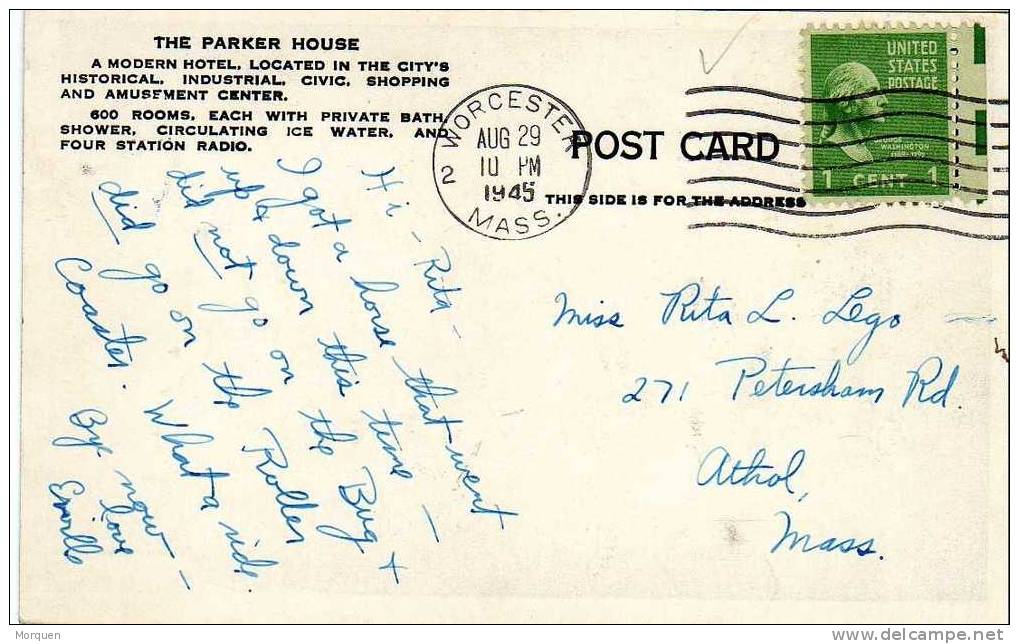 THE PARKER HOUSE
A MODERN HOTEL, LOCATED IN THE CITY'S
HISTORICAL, INDUSTRIAL, CIVIC, SHOPPING
AND AMUSEMENT CENTER.
600 ROOMS, EACH WITH PRIVATE BATH,
SHOWER, CIRCULATING ICE WATER, AND
FOUR STATION RADIO.
WORCESTER
2
AUG 29
10 PM
1945
MASS.
POST CARD
THIS SIDE IS FOR THE ADDRESS
UNITED
STATES
POSTAGE
WASHINGTON
1 CENT 1
Hi - Rita -
I got a horse that went
up & down this time -
did not go on the Bug +
did go on the Roller
Coaster. What a ride.
By now -
love
Miss Rita L. Lego
271 Petersham Rd.
Athol,
Mass.
Morquen
www.delcampe.net